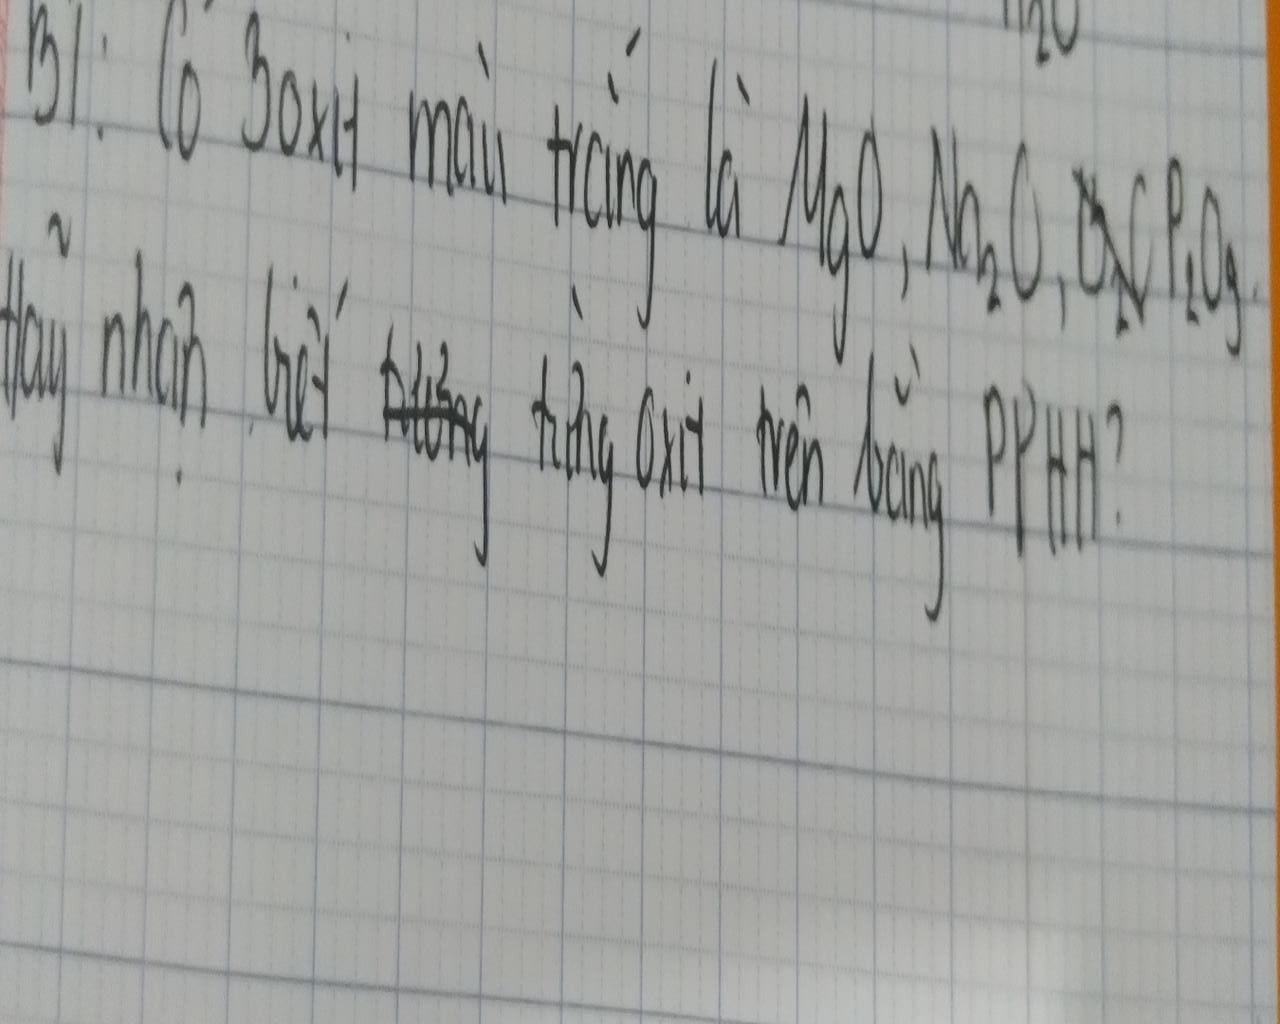 H₂O
B1: Có 3 oxit màu trắng là MgO, Na₂O, P₂O₅.
Hãy nhận biết từng oxit trên bằng PPHH?